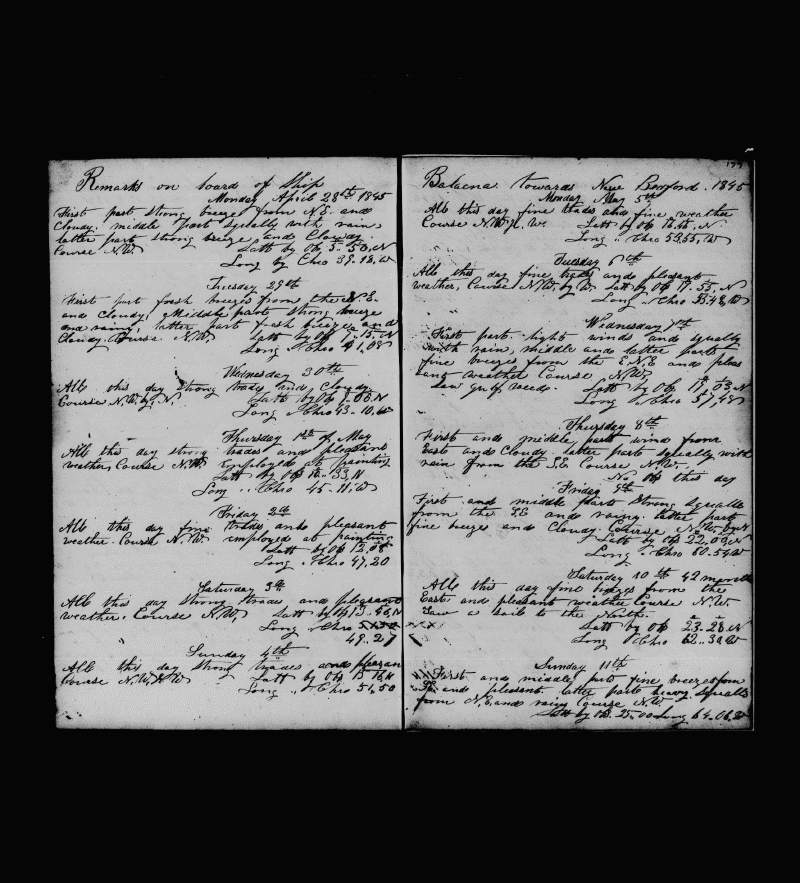 Remarks on board of Ship
Monday April 28th 1845
First part strong breeze from N.E. and
Cloudy. middle part squally with rain,
latter part strong breeze and Cloudy
Course N.W. Latt by Ob 5..58, N
Long by Chro 39.18, W
Tuesday 29th
First part fresh breezes from the N.E.
and Cloudy, Middle part strong breeze
and rainy, latter part fresh breeze and
Cloudy. Course N.W. Latt by Ob 15, N
Long .. Chro 41,08
Wednesday 30th
All this day strong trades and Cloudy
Course N.W. by N. Latt by Ob 06 N
Long .. Chro 43..10, W
Thursday 1st of May
All this day strong trades and pleasant
weather, Course N.W. employed at painting
Latt by Ob 10..33, N
Long .. Chro 45..11, W
Friday 2d
All this day fine trades and pleasant
weather. Course N.W. employed at painting
Latt by Ob 12,08
Long .. Chro 47,20
Saturday 3d
All this day strong trades and pleasant
weather, Course N.W. Latt by Ob 13..46, N
Long .. Chro
49..27
Sunday 4th
All this day strong trades and pleasan
Course N.W. Latt by Ob 15 16 N
Long .. Chro 51,50
199
Balaena towards New Bedford. 1845
Monday May 5th
All this day fine trades and fine weather
Course N.W. Latt by Ob 16.45, N
Long .. Chro 53,55, W
Tuesday 6th
All this day fine trades and pleasant
weather, Course N.W. by W. Latt by Ob 17..55, N
Long .. Chro 55.48, W
Wednesday 7th
First part light winds and squally
with rain, middle and latter parts
fine breezes from the E.N.E and pleas
ant weather Course N.W.
saw gulf weed. Latt by Ob 19,03 N
Long .. Chro 57,48
Thursday 8th
First and middle part wind from
East and Cloudy latter part squally with
rain from the S.E Course N.W.
No Ob this day
Friday 9th
First and middle parts strong squalls
from the S.E and rainy latter part
fine breeze and Cloudy Course N.W. by N
Latt by Ob 22..09, N
Long .. Chro 60..54 W
Saturday 10th 42 months
All this day fine breezes from the
East and pleasant weather Course N.W.
Saw a sail to the North.
Latt by Ob 23..28, N
Long .. Chro 62..30 W
Sunday 11th
First and middle part fine breezes from
S.E and pleasant latter part heavy squalls
from N.E and rainy Course N.W.
Latt by Ob. 25..00 Long 64..06, W